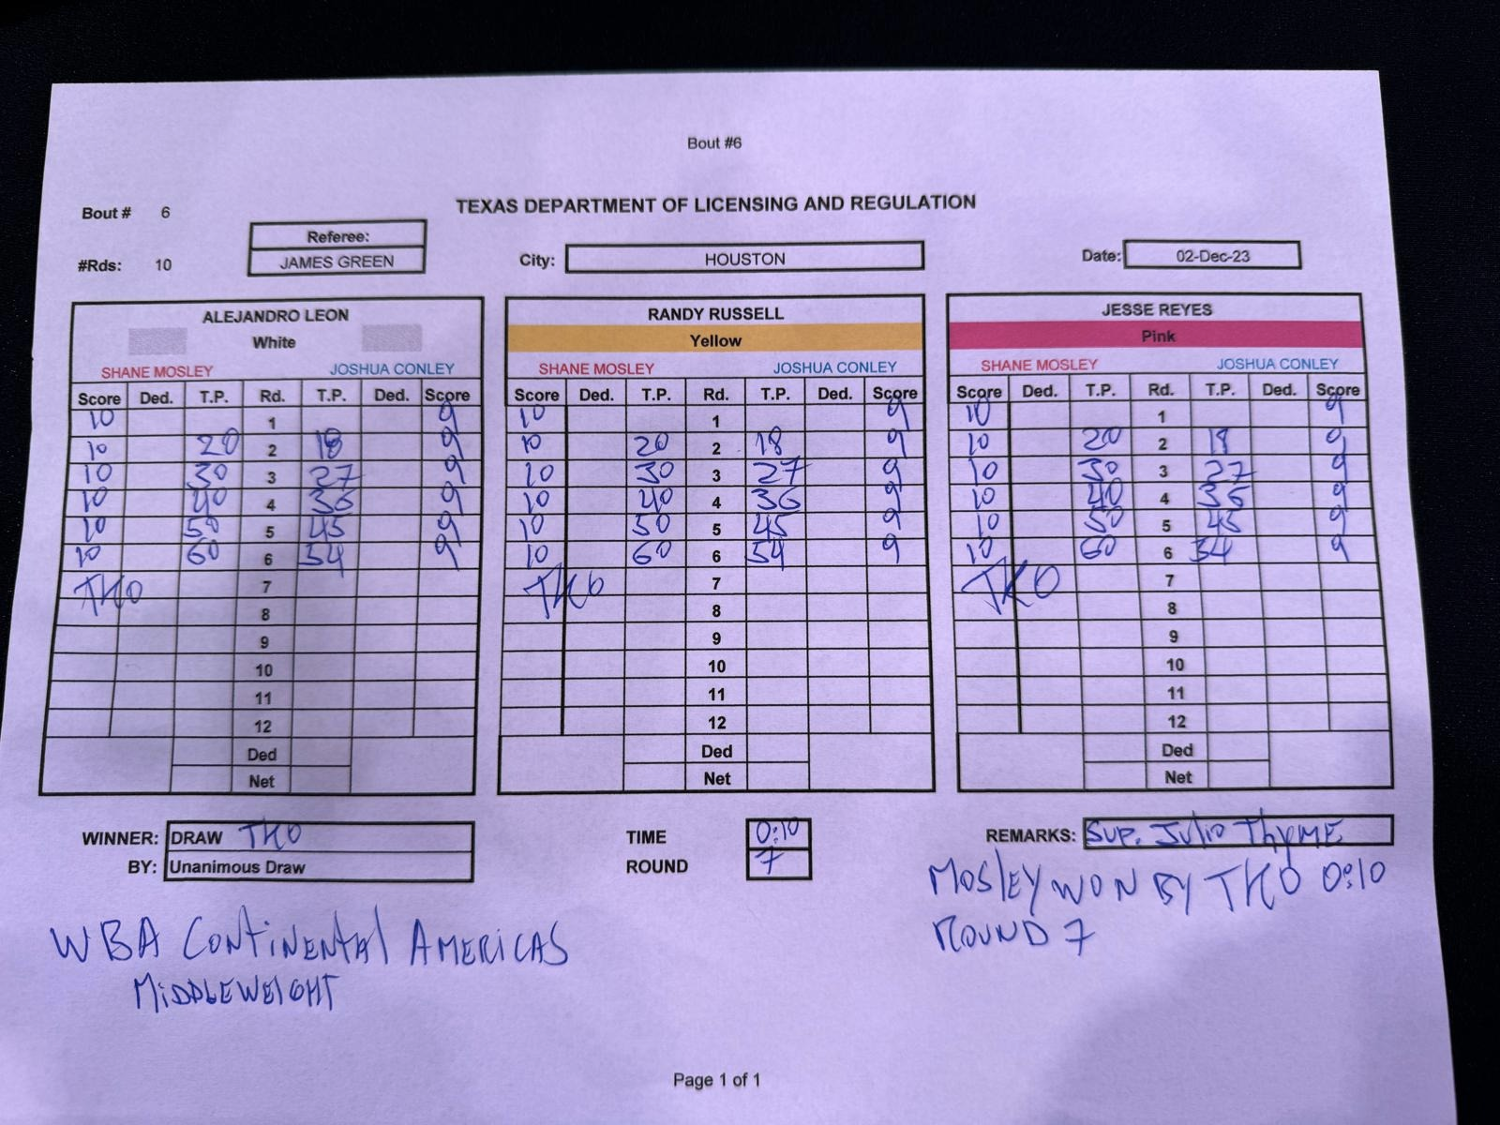 Bout #6
TEXAS DEPARTMENT OF LICENSING AND REGULATION
Bout # 6
#Rds: 10
Referee:
JAMES GREEN
City: HOUSTON
Date: 02-Dec-23
ALEJANDRO LEON
White
SHANE MOSLEY JOSHUA CONLEY
Score Ded. T.P. Rd. T.P. Ded. Score
10 1 9
10 20 2 18 9
10 30 3 27 9
10 40 4 36 9
10 50 5 45 9
10 60 6 54 9
TKO 7
8
9
10
11
12
Ded
Net
RANDY RUSSELL
Yellow
SHANE MOSLEY JOSHUA CONLEY
Score Ded. T.P. Rd. T.P. Ded. Score
10 1 9
10 20 2 18 9
10 30 3 27 9
10 40 4 36 9
10 50 5 45 9
10 60 6 54 9
TKO 7
8
9
10
11
12
Ded
Net
JESSE REYES
Pink
SHANE MOSLEY JOSHUA CONLEY
Score Ded. T.P. Rd. T.P. Ded. Score
10 1 9
10 20 2 18 9
10 30 3 27 9
10 40 4 36 9
10 50 5 45 9
10 60 6 54 9
TKO 7
8
9
10
11
12
Ded
Net
WINNER: DRAW TKO
BY: Unanimous Draw
TIME 0:10
ROUND 7
REMARKS: SUP. Julio ThyME
MOSLEY WON BY TKO 0:10
ROUND 7
WBA CONTINENTAL AMERICAS
MIDDLEWEIGHT
Page 1 of 1